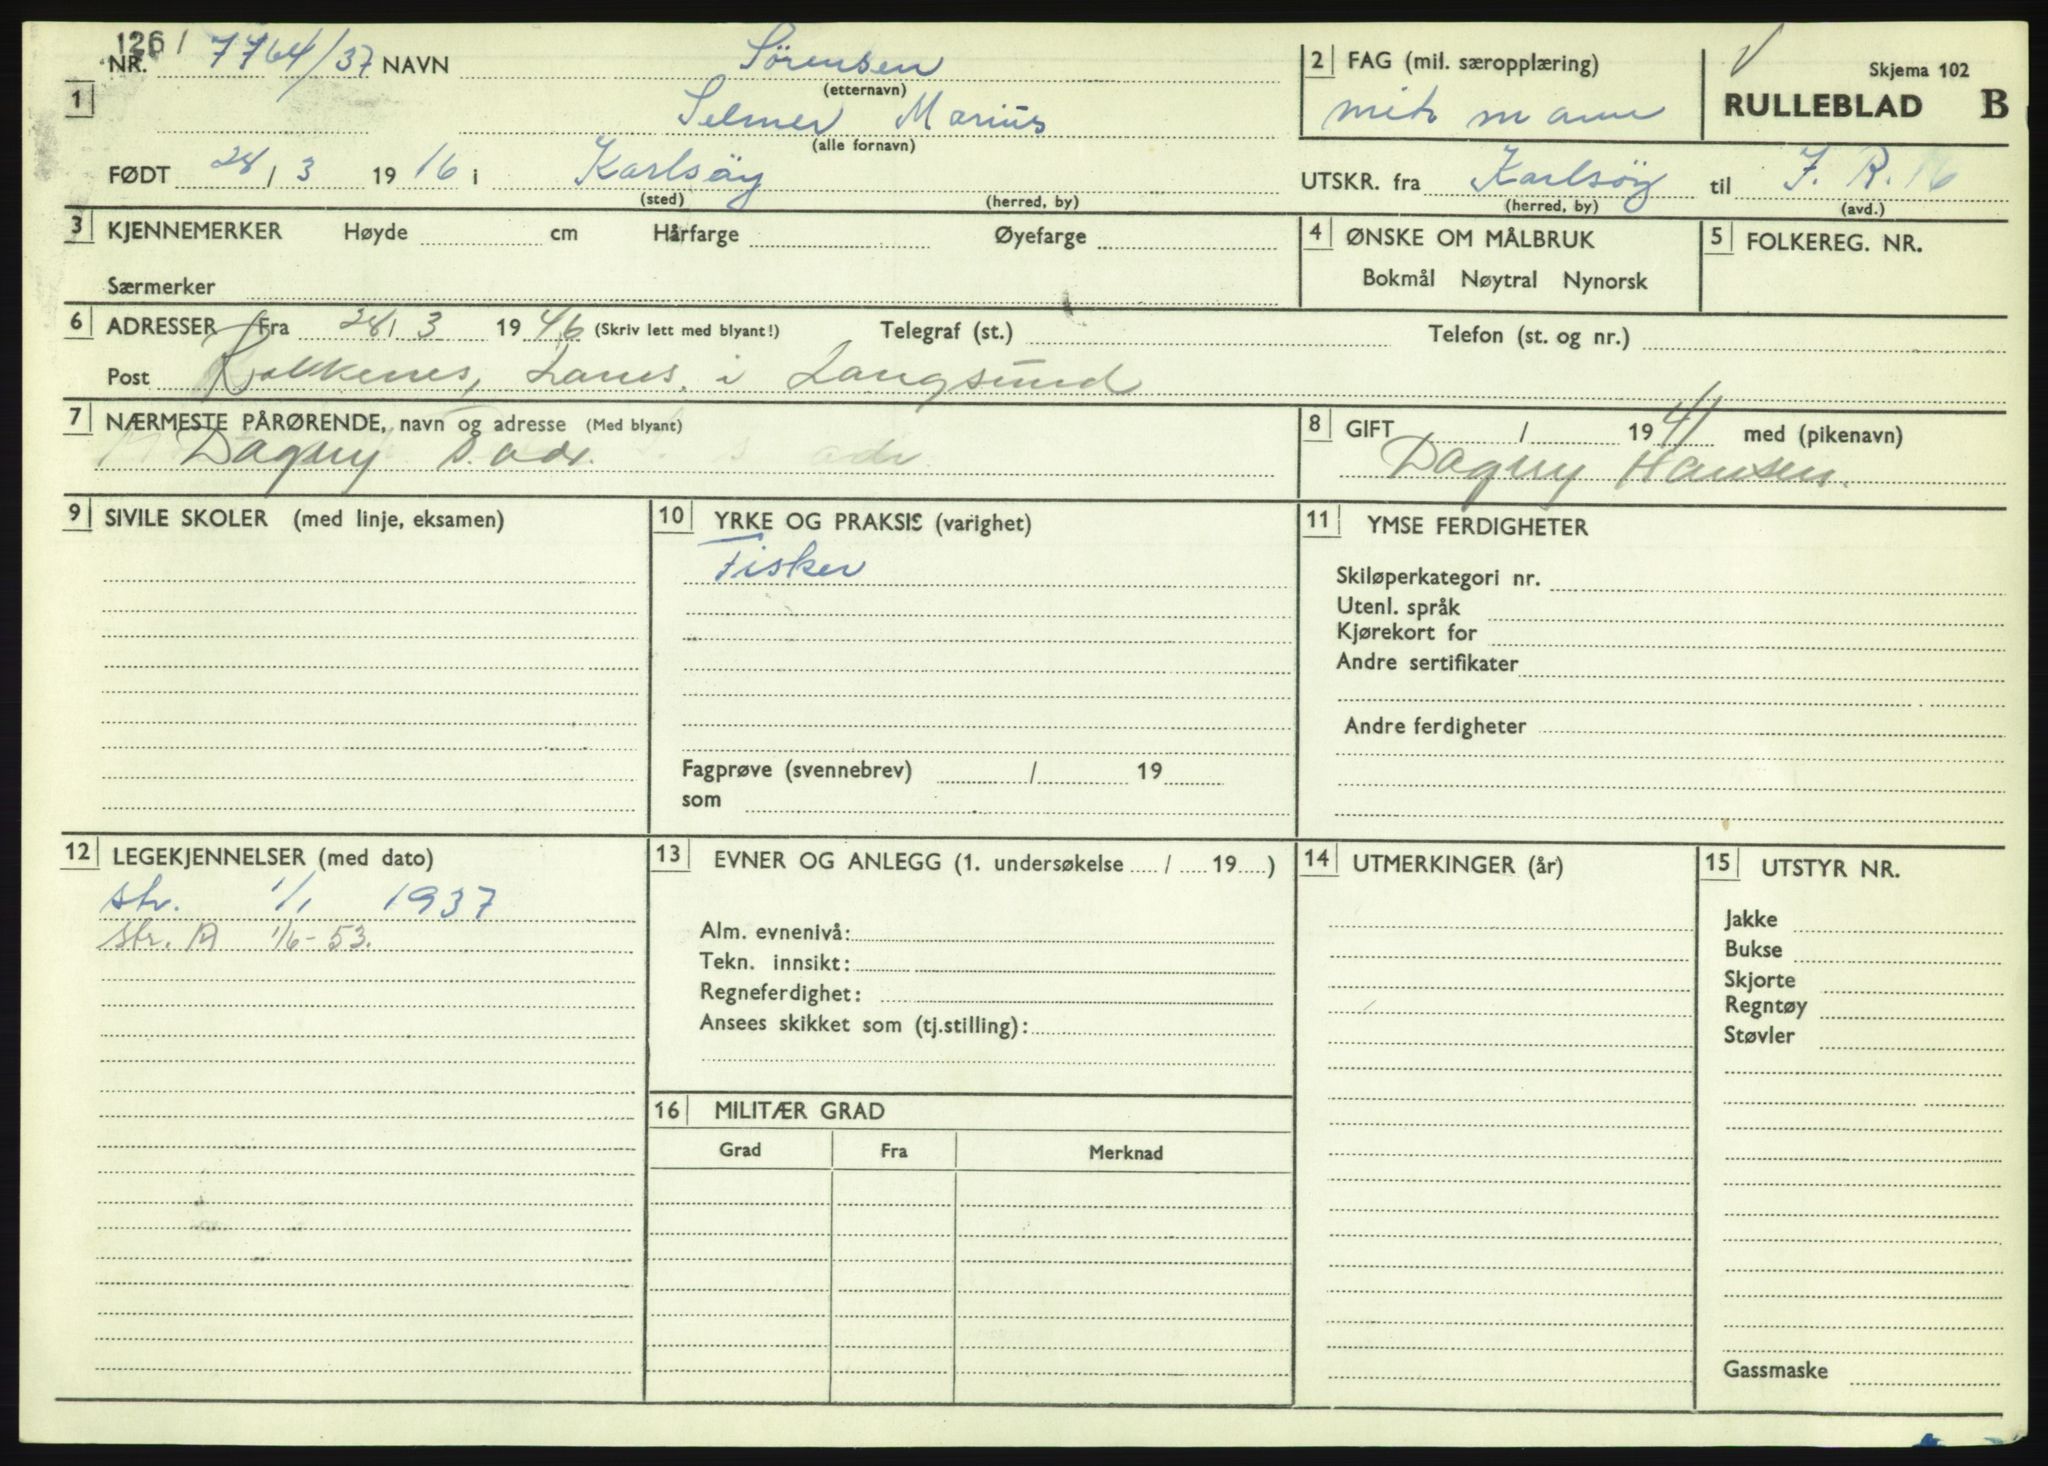 1261
NR. 7764/37 NAVN Sörensen
(etternavn)
2 FAG (mil. særopplæring)
V Skjema 102
1 Selmer Marius
(alle fornavn)
mitr mann
RULLEBLAD B
FØDT 28/3 1916 i Karlsöy
(sted) (herred, by)
UTSKR. fra Karlsöy til J. R. 16
(herred, by) (avd.)
3 KJENNEMERKER Høyde cm Hårfarge Øyefarge
Særmerker
4 ØNSKE OM MÅLBRUK
Bokmål Nøytral Nynorsk
5 FOLKEREG. NR.
6 ADRESSER Fra 28/3 1946 (Skriv lett med blyant!) Telegraf (st.) Telefon (st. og nr.)
Post i Langsund
7 NÆRMESTE PÅRØRENDE, navn og adresse (Med blyant)
Dagny s. adr.
8 GIFT / 1941 med (pikenavn)
Dagny Hansen.
9 SIVILE SKOLER (med linje, eksamen)
10 YRKE OG PRAKSIS (varighet)
Fisker
Fagprøve (svennebrev) / 19
som
11 YMSE FERDIGHETER
Skiløperkategori nr.
Utenl. språk
Kjørekort for
Andre sertifikater
Andre ferdigheter
12 LEGEKJENNELSER (med dato)
str. 1/1 1937
str. A 1/6-53.
13 EVNER OG ANLEGG (1. undersøkelse / 19 )
Alm. evnenivå:
Tekn. innsikt:
Regneferdighet:
Ansees skikket som (tj.stilling):
14 UTMERKINGER (år)
15 UTSTYR NR.
Jakke
Bukse
Skjorte
Regntøy
Støvler
Gassmaske
16 MILITÆR GRAD
Grad Fra Merknad